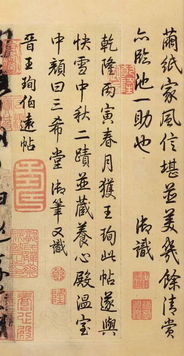 繭紙家風信堪並美幾餘清賞
亦臨池一助也
御識
乾隆丙寅春月獲王珣此帖遂與
快雪中秋二蹟並藏養心殿溫室
中顏曰三希堂御筆又識
晉王珣伯遠帖